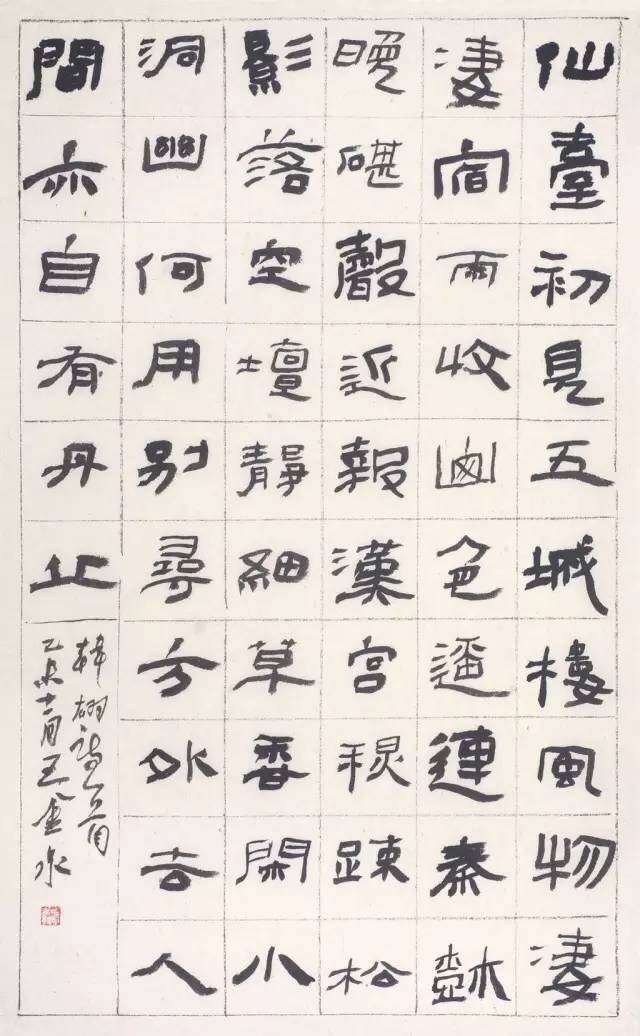 仙臺初見五城樓風物淒
淒宿雨收山色遥連秦樹
晚碪聲近報漢宮秋踈松
影落空壇靜細草香閑小
洞幽何用別尋方外去人
間亦自有丹丘
韓翃詩一首
乙未十二月王金泉